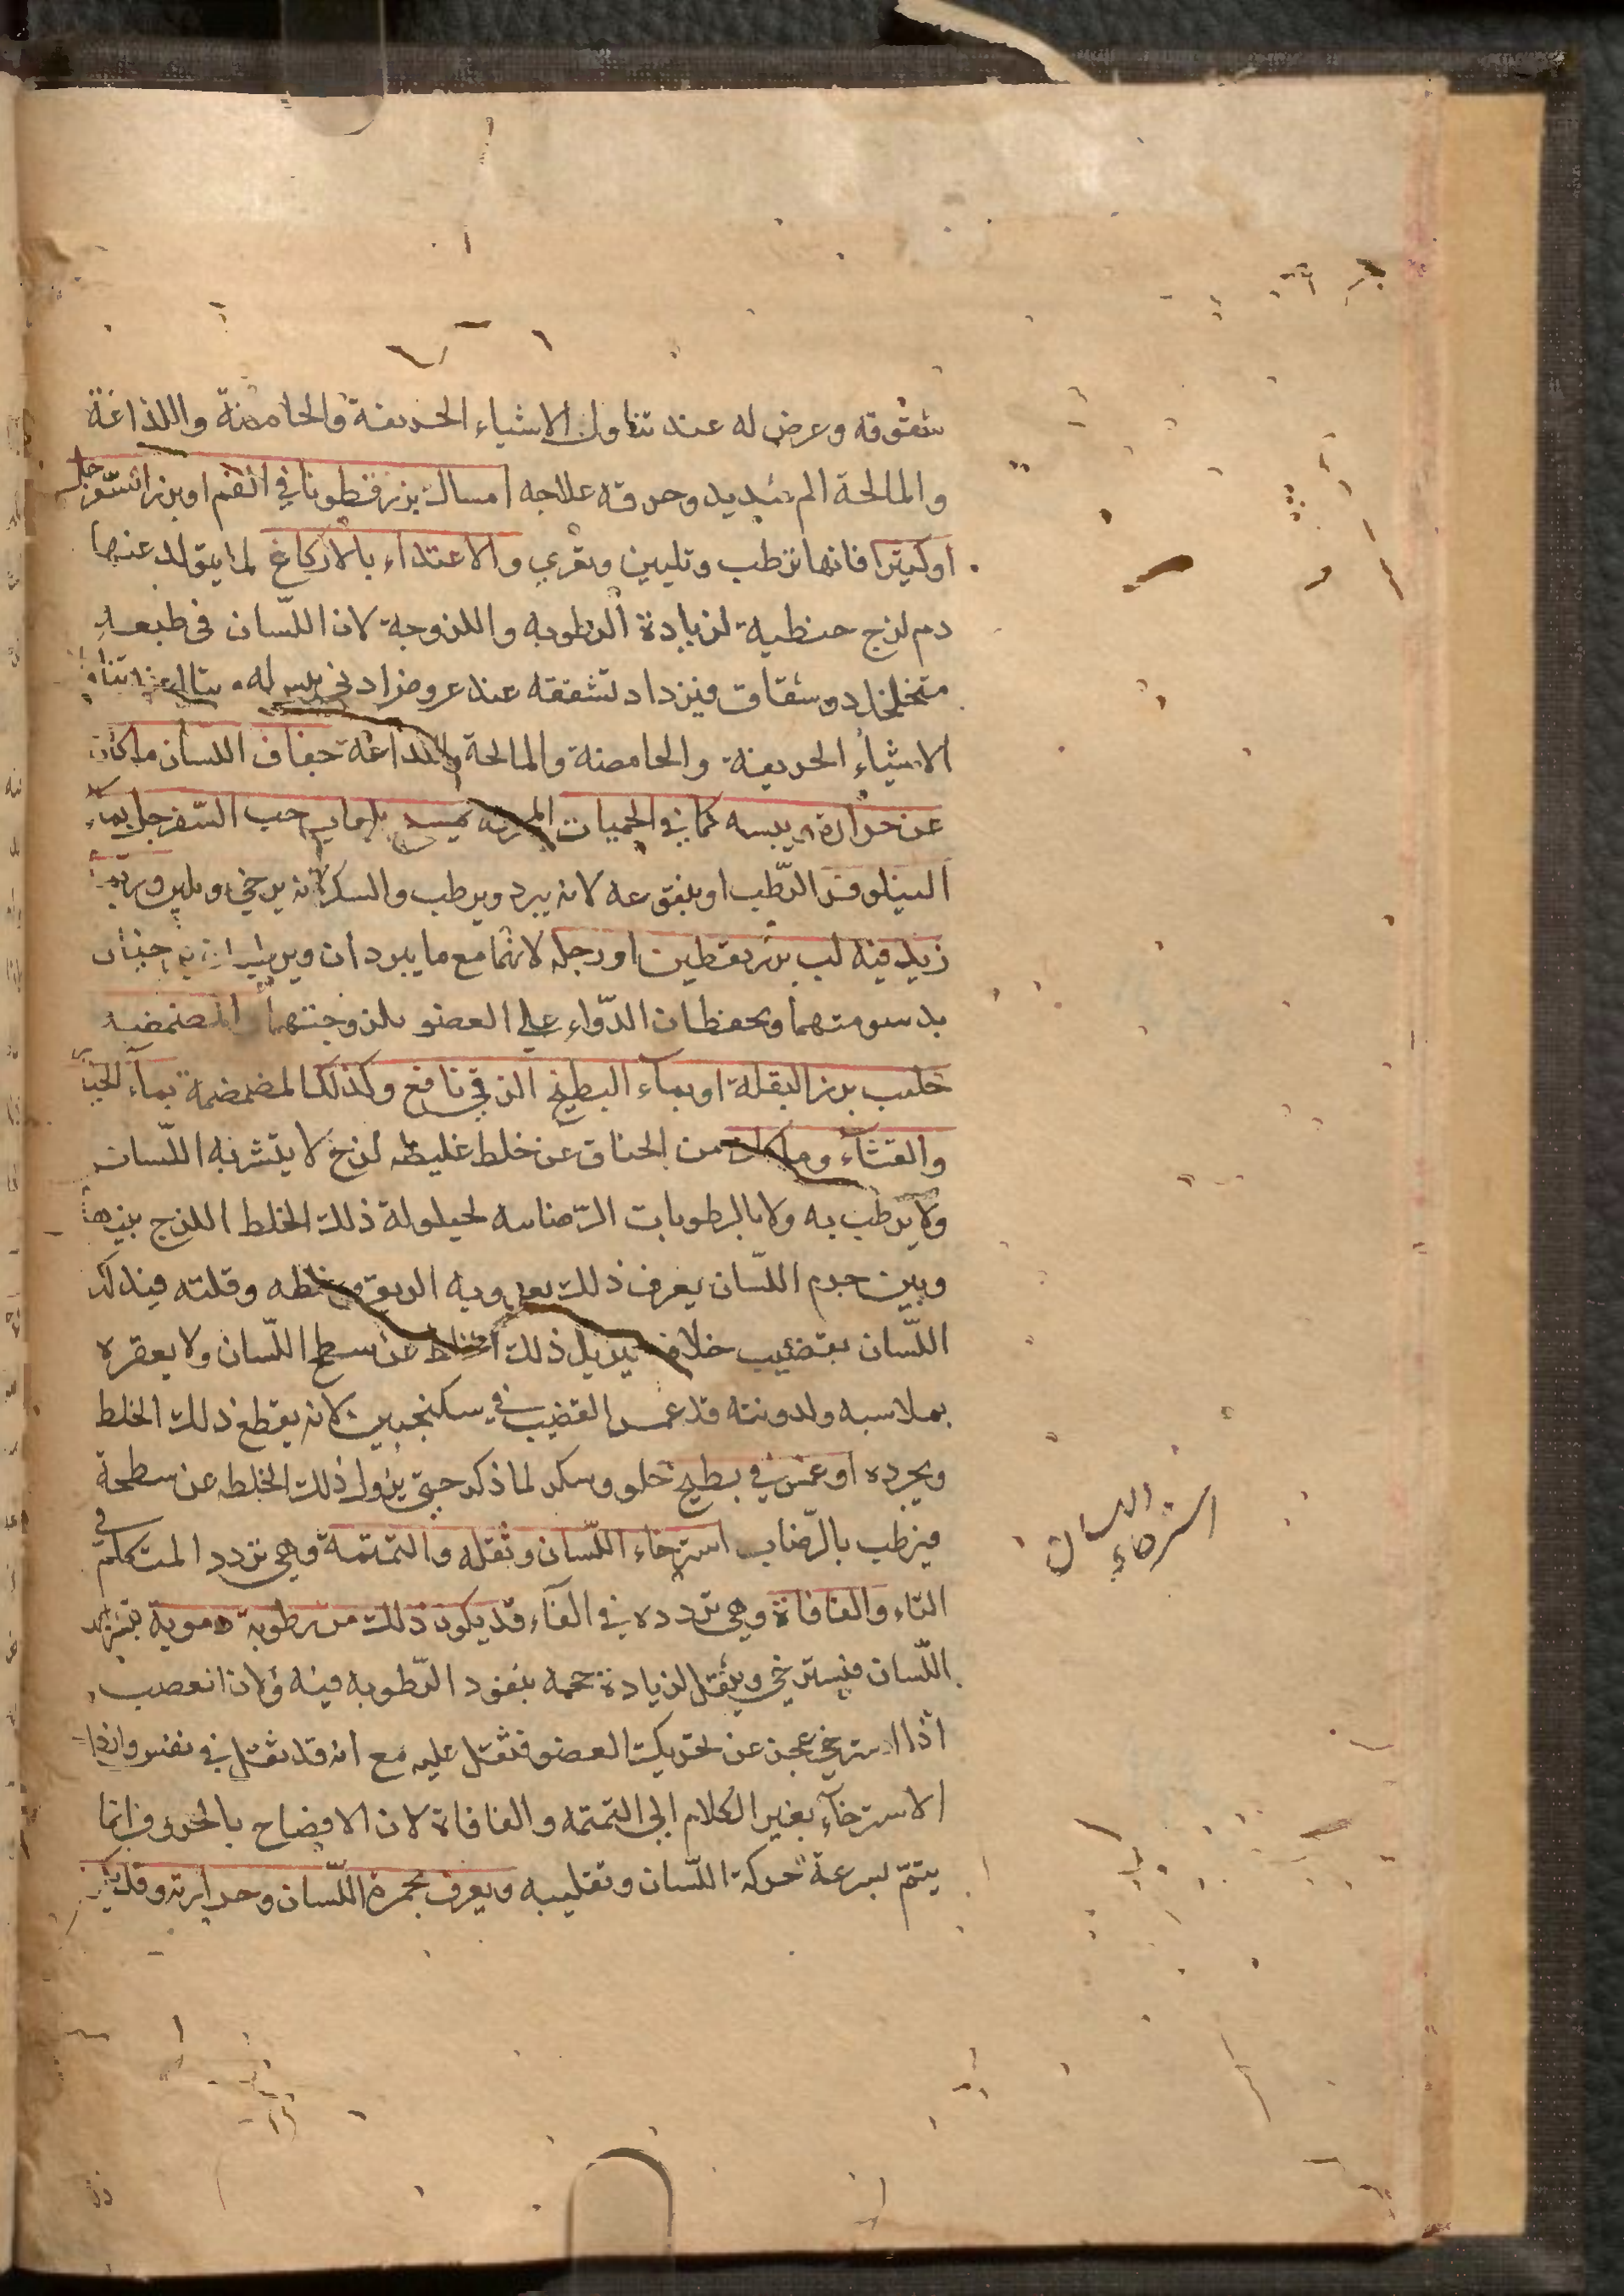 شقوقه وعرض له عند تناول الاشياء الحريفة والحامضة واللذاعة
والمالحة الم شديد وحرقة علاجه امساك بزرقطونا في الفم او بزر السفرجل
او كثيرا فانها ترطب وتليين وتغري والاغتذاء بالاكارع لما يتولد عنها
دم لزج حنطية لزيادة الرطوبه واللزوجة لان اللسان في طبعه
متخلخل ذو شقاق فيزداد تشققه عند عروض ادنى يبس له
الاشياء الحريفة والحامضة والمالحة واللذاعة جفاف اللسان ما كان
عن حرارة ويبسه كما في الحميات المحرقه يمسح بلعاب حب السفرجل بماء
النيلوفر الرطب او بنقوعه لانه يبرد ويرطب والسكر لانه يرخي ويلين وربما
زيد فيه لب بزر يقطين او رجله لانهما مع ما يبردان ويرطبان
بدسومتهما ويحفظان الدواء على العضو بلزوجتهما المضمضه
حليب بزر البقلة او بماء البطيخ الزقي نافع وكذلك المضمضة بماء الخيار
والقثاء وما كان من الجفاف عن خلط غليظ لزج لا يتشربه اللسان
ولا يرطب به ولا بالرطوبات الرضابيه لحيلولة ذلك الخلط اللزج بينها
وبين جرم اللسان يعرف ذلك بعذوبه الريق وغلظه وقلته فيدلك
اللسان بقضيب خلاف يزيل ذلك الخلط عن سطح اللسان ولا يعقره
بملاسته ولدونته قد غمس القضيب في سكنجبين لانه يقطع ذلك الخلط
ويجرده او غمس في بطيخ حلو وسكر لما ذكر حتى يزول ذلك الخلط عن سطحه
فيرطب بالرضاب استرخاء اللسان وثقله والتمتمة وهي تردد المتكلم في
التاء والفافاة وهي تردده في الفاء قد يكون ذلك من رطوبة دموية
اللسان فيسترخي ويثقل لزيادة حجمه بنفوذ الرطوبه فيه ولان العصب
اذا استرخي عجز عن تحريك العضو فثقل عليه مع انه قد ثقل في نفسه واذا
الاسترخاء بغير الكلام الى التمتمه والفافاة لان الافصاح بالحروف انما
يتم بسرعة حركة اللسان وتقليبه ويعرف بحمرة اللسان وحرارته وقد
استرخاء اللسان